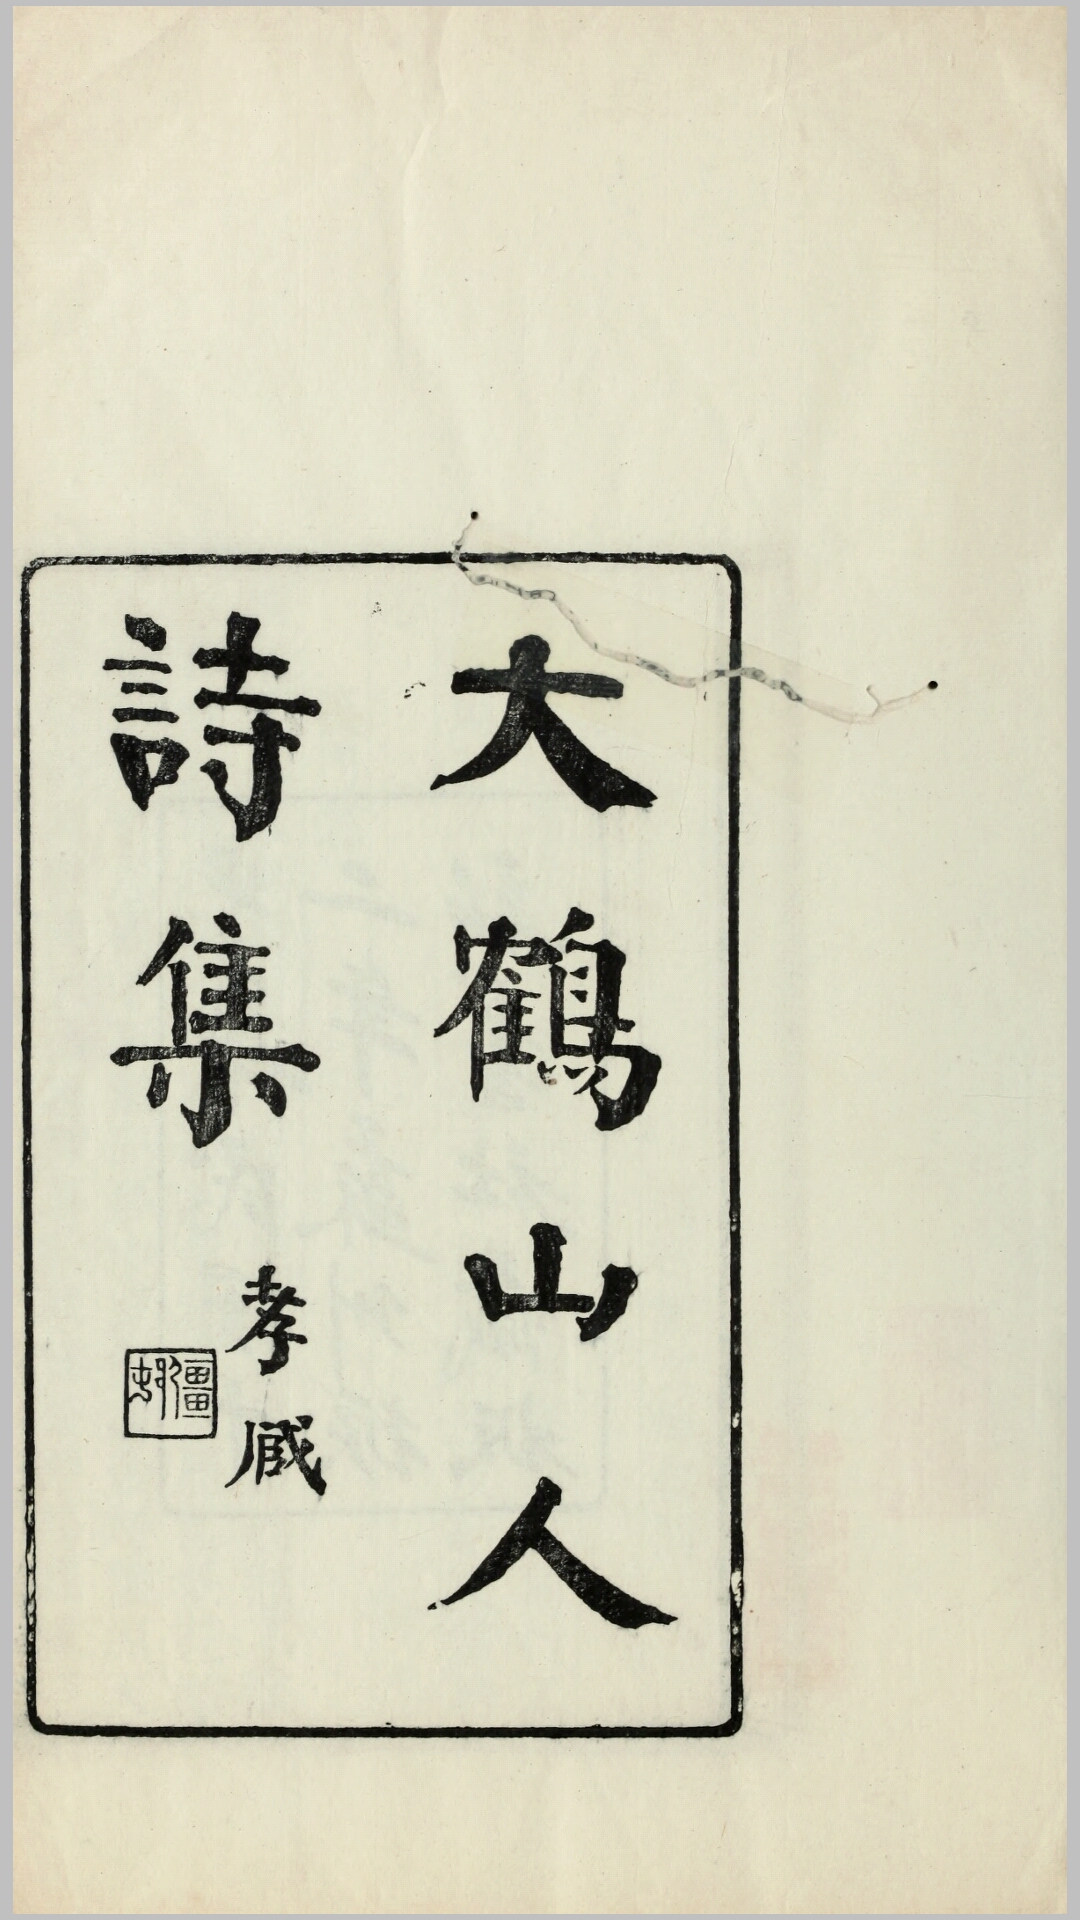 大鶴山人
詩集
孝臧
彊邨